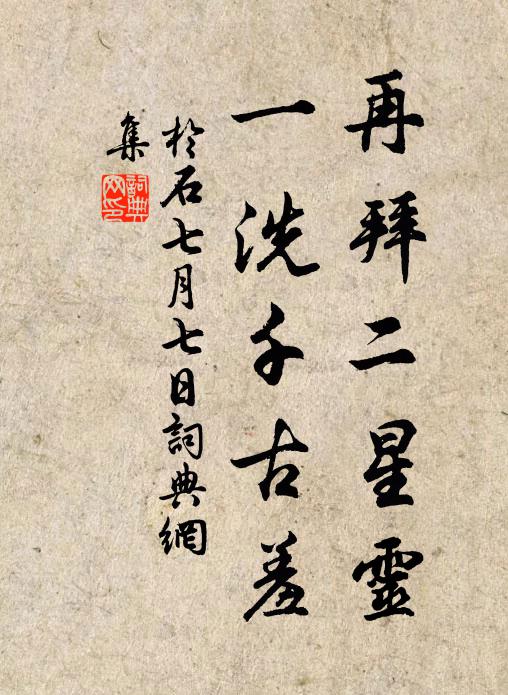 再拜二星靈
一洗千古羞
於石七月七日詞典網
集
詞典
网印